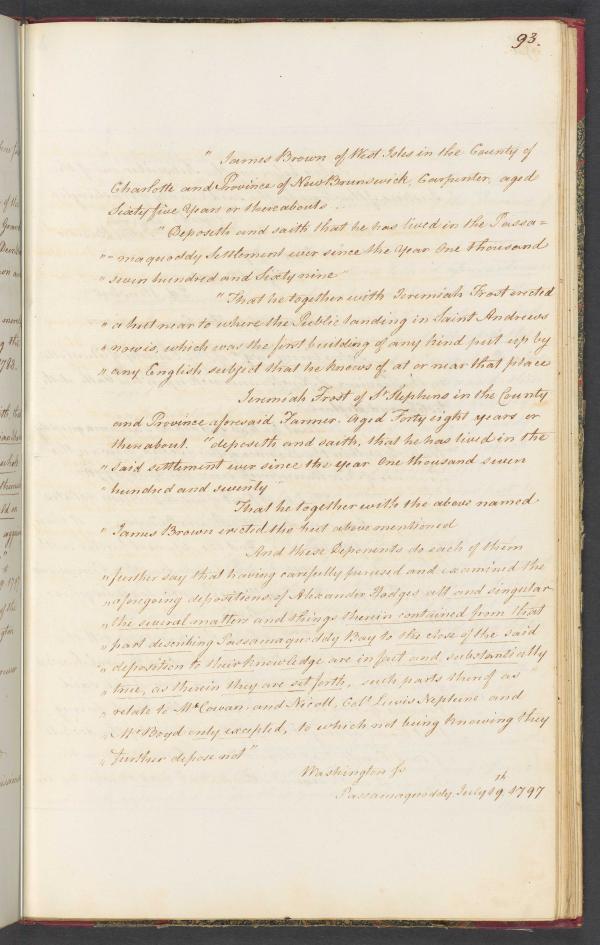 93.
" James Brown of West Isles in the County of
Charlotte and Province of New Brunswick, Carpenter, aged
Sixty five Years or thereabouts.
" Deposeth and saith that he has lived in the Passa=
"- maquoddy Settlement ever since the Year One thousand
" seven hundred and Sixty nine"
" That he together with Jeremiah Frost erected
" a hut near to where the Public landing in Saint Andrews
" now is, which was the first building of any kind put up by
" any English subject that he knows of, at or near that place
Jeremiah Frost of St Stephens in the County
and Province aforesaid, Farmer, Aged Forty eight years or
thereabout. "deposeth and saith, that he has lived in the
" said settlement ever since the year One thousand seven
" hundred and seventy
That he together with the above named
" James Brown erected the hut above mentioned
And these Deponents do each of them
" further say that having carefully perused and examined the
" aforegoing depositions, of Alexander Hodges, all and singular
" the several matters and things therein contained from that
" part describing Passamaquoddy Bay to the close of the said
" deposition to their knowledge are in fact and substantially
" true, as therein they are set forth, such parts thereof as
" relate to McCowan, and Nicoll, Colo. Lewis Neptune and
" Mr Boyd only excepted, to which not being knowing they
" further depose not"
Washington fs
Passamaquoddy July 19th 1797